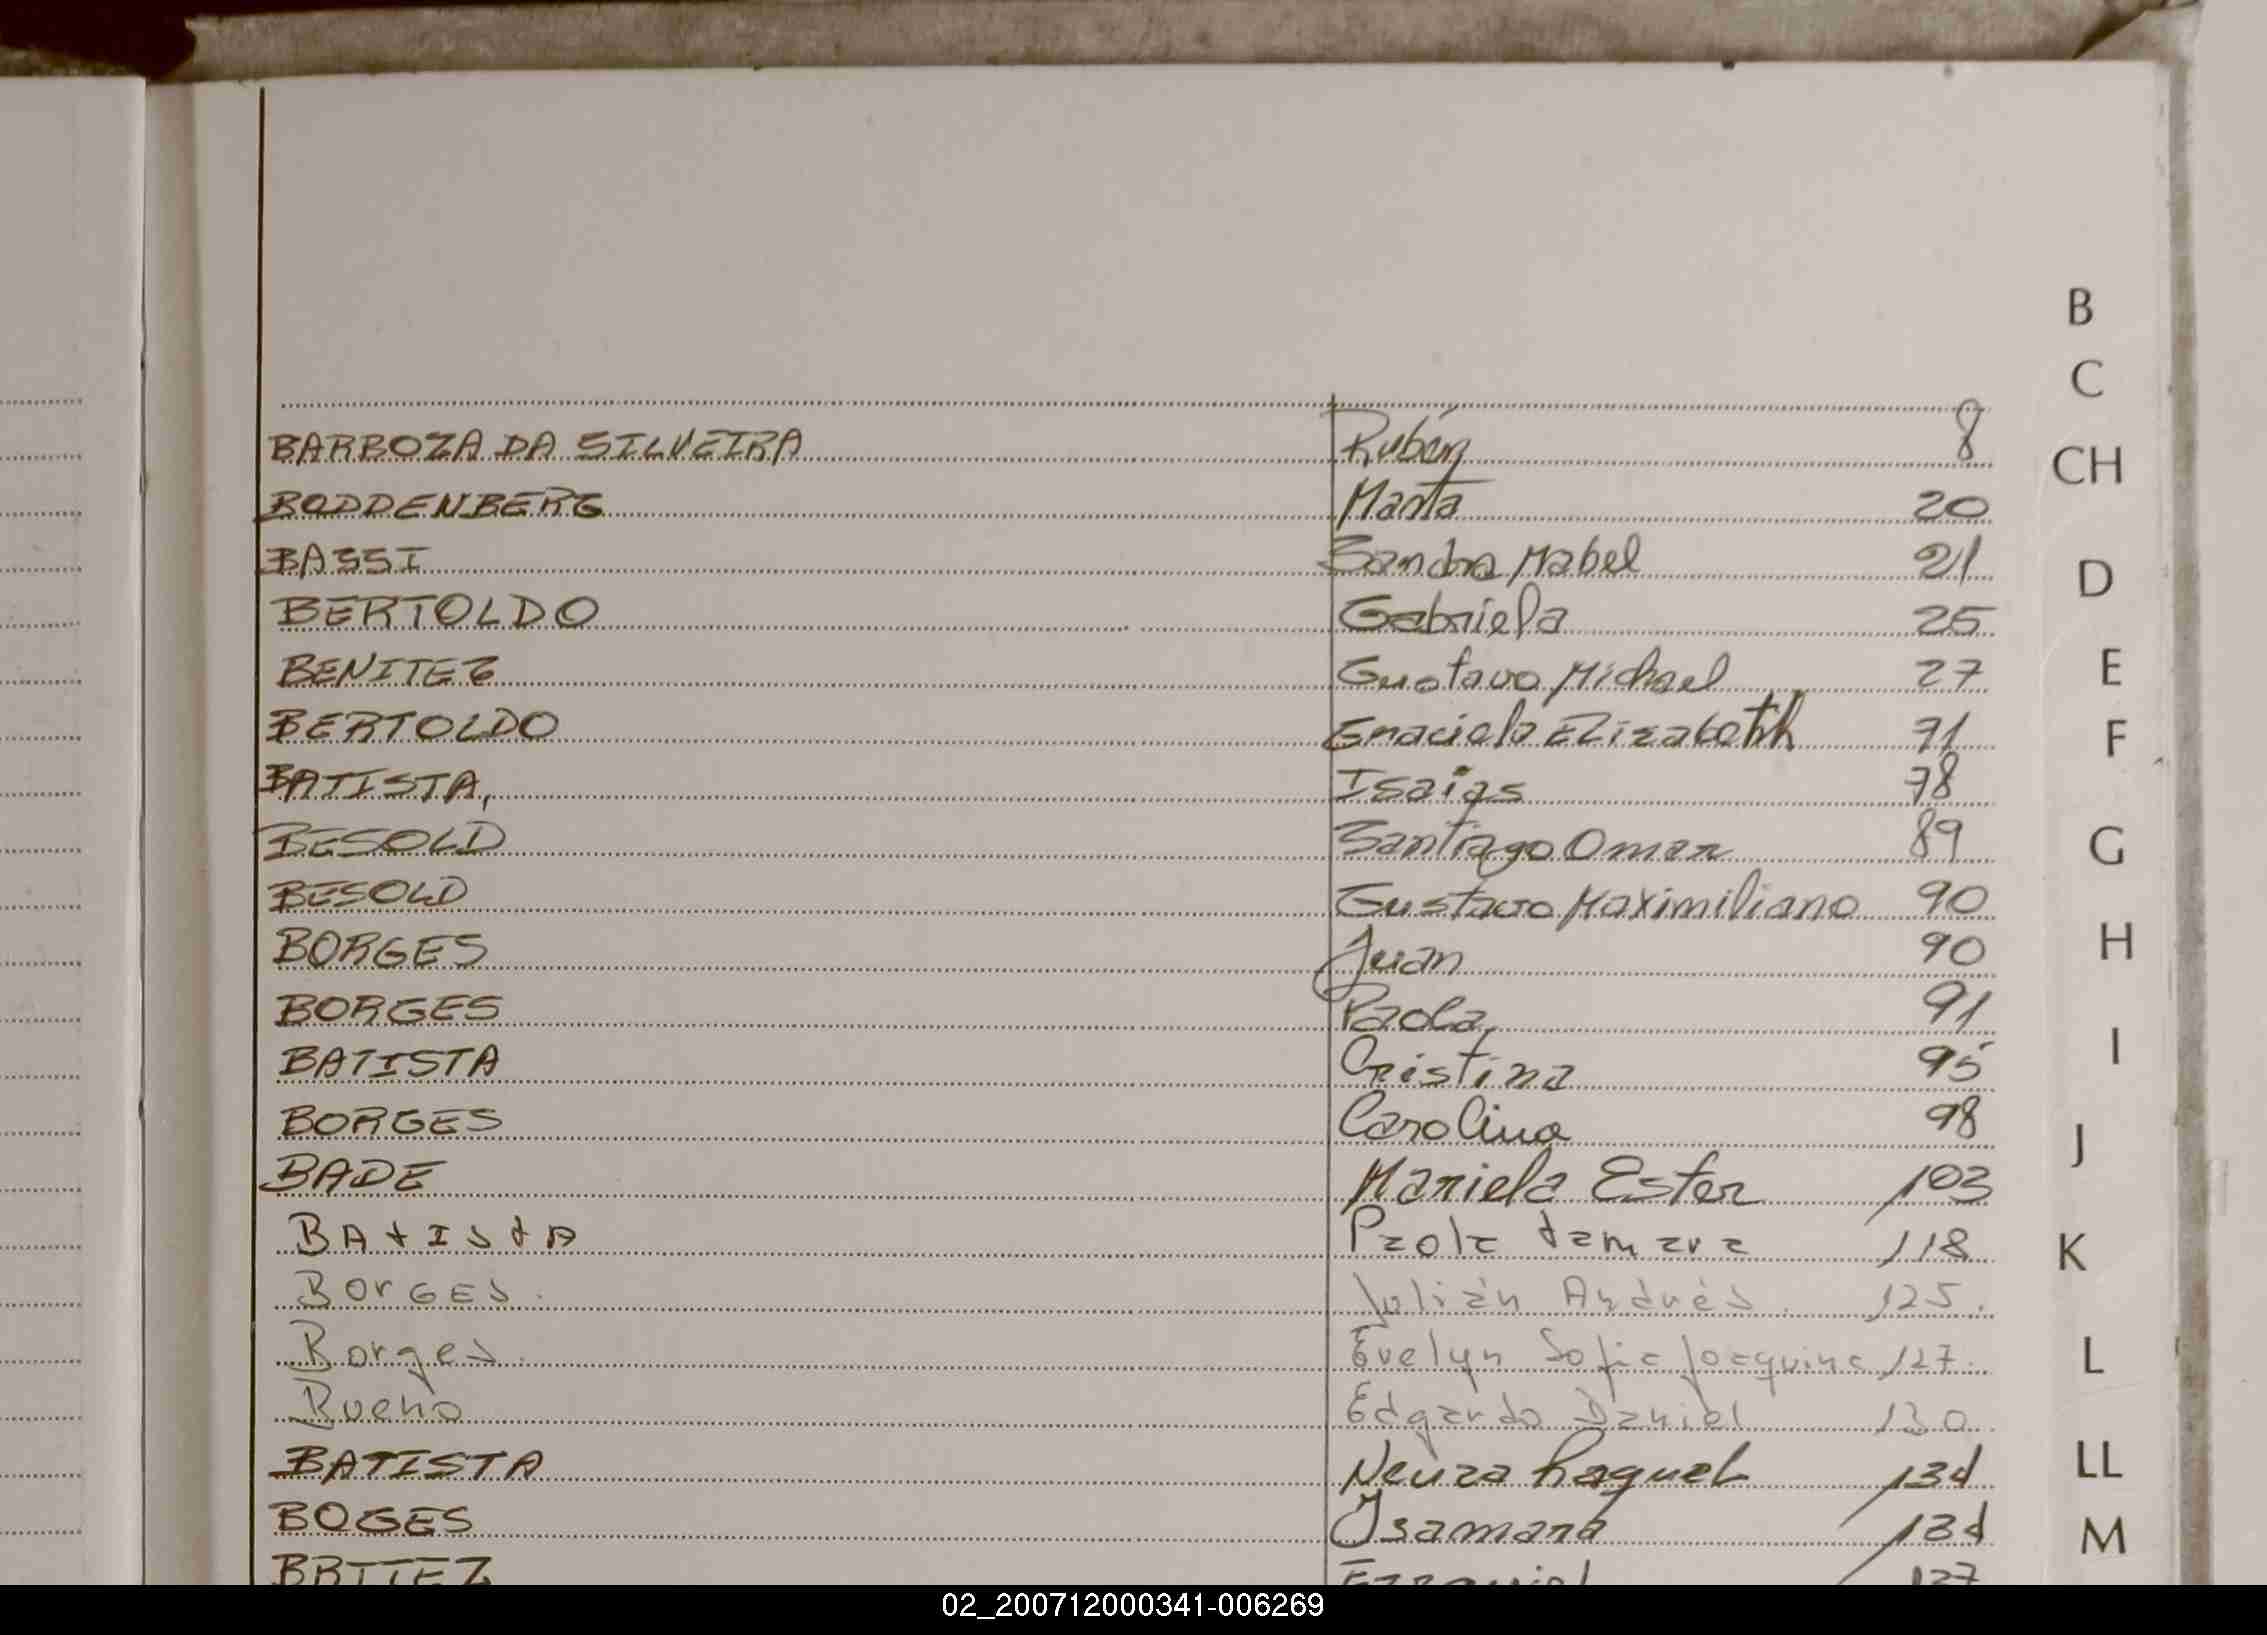 BARBOZA DA SILVEIRA Rubén 8
BODDENBERG Marta 20
BASSI Sandra Mabel 21
BERTOLDO Gabriela 25
BENITEZ Gustavo Michael 27
BERTOLDO Graciela Elizabeth 71
BATISTA, Isaias 78
BESOLD Santiago Omar 89
BESOLD Gustavo Maximiliano 90
BORGES Juan 90
BORGES Paola 91
BATISTA Cristina 95
BORGES Carolina 98
BADE Mariela Ester 103
BAtIstA Paola tamara 118
BorGES. Julián Andrés. 125.
Borges. Evelyn Sofia Joaquina 127.
Bueno Edgardo Daniel 130
BATISTA Neuza Raquel 134
BOGES Isamara 134
BRITEZ Ezequiel 137
B
C
CH
D
E
F
G
H
I
J
K
L
LL
M
02_200712000341-006269